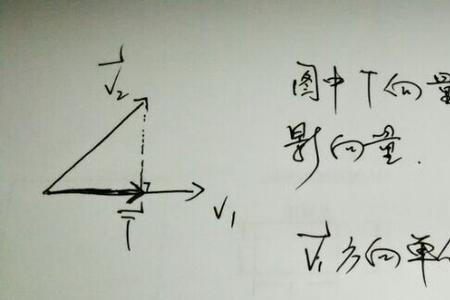 V₂
T
V₁
图中T向量
影向量.
V₁方向单